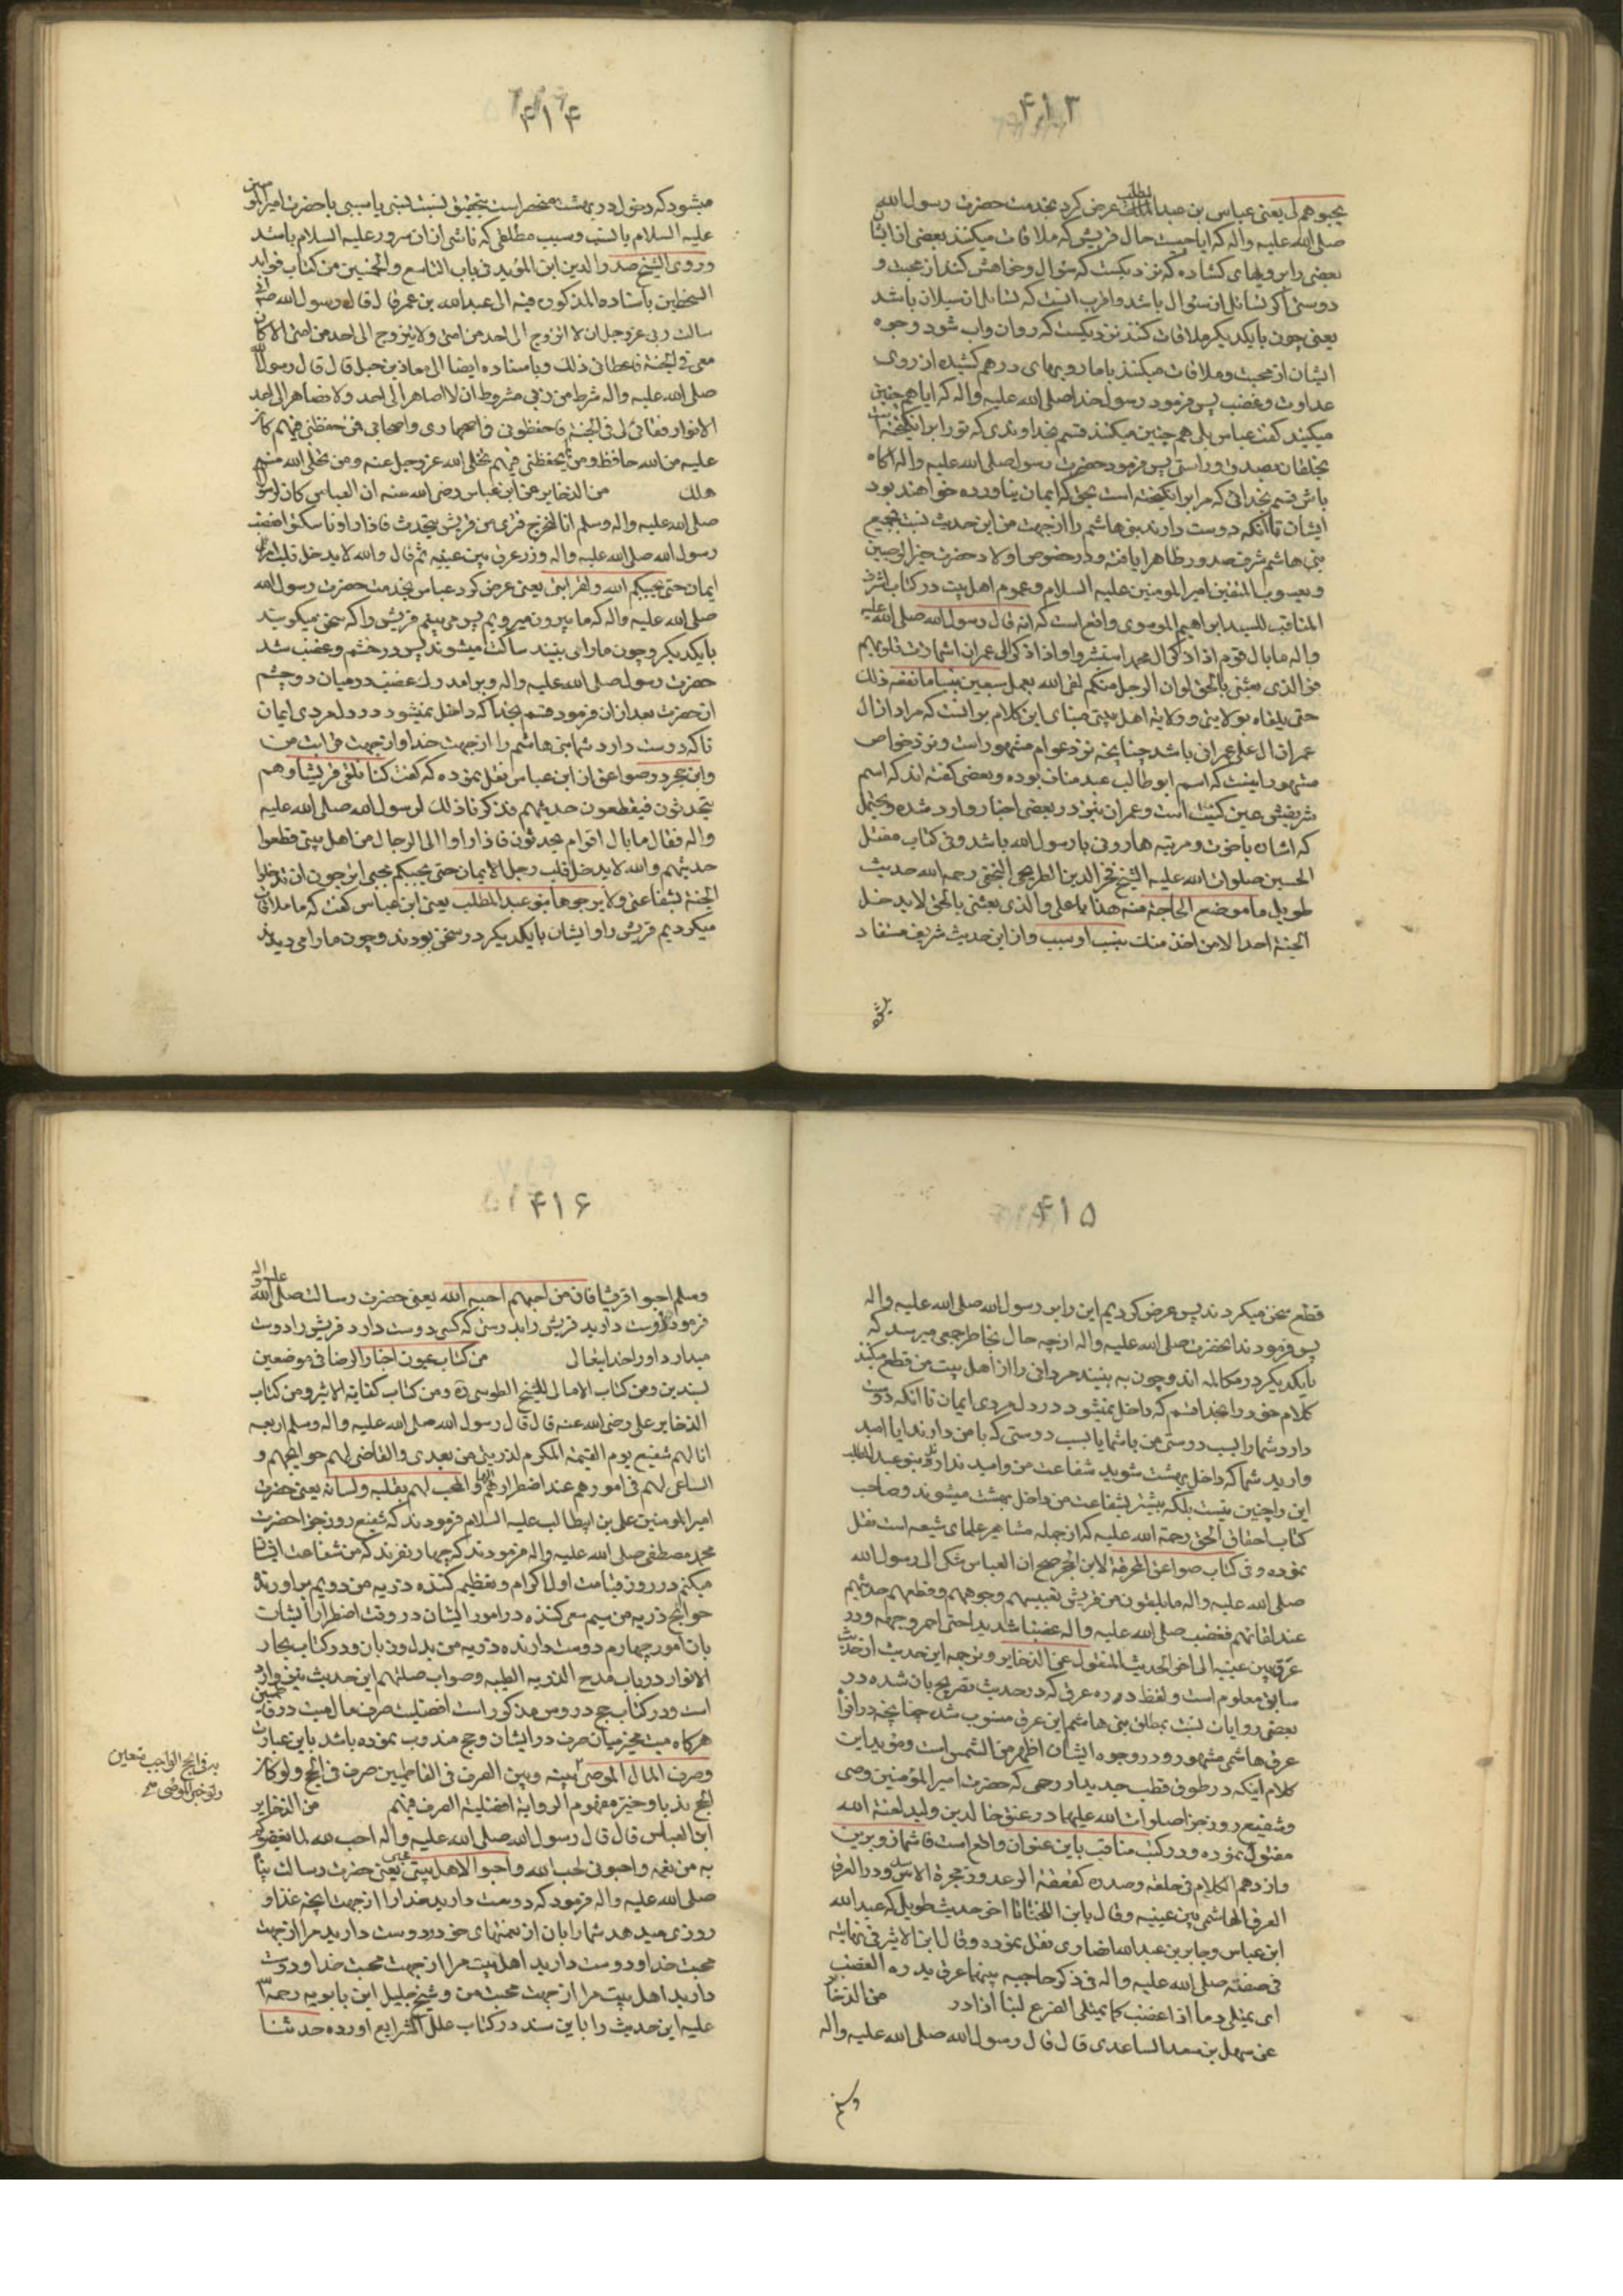 ۴۱۳
یحبوهم لی یعنی عباس بن عبدالمطلب عرض کرد بخدمت حضرت رسول الله
صلی الله علیه واله که ایا چیست حال قریش که ملاقات میکنند بعضی از ایشان
بعضی را برویهای کشاده که نزدیکست که سؤال وخواهش کنند از محبت و
دوستی اکر تسائل از سؤال باشد واقرب انست که تسائل از سیلان باشد
یعنی چون بایکدیکر ملاقات کنند نزدیکست که روان واب شود وجوه
ایشان از محبت وملاقات میکنند باما رویهای درهم کشیده از روی
عداوت وغضب پس فرمود رسول خدا صلی الله علیه واله که ایا همچنین
میکنند کفت عباس بلی همچنین میکنند قسم بخداوندی که تو را برانکیخته است
بخلقان بصدق وراستی پس فرمود حضرت رسول صلی الله علیه واله اکاه
باش قسم بخدائی که مرا برانکیخته است بحق که ایمان نیاورده خواهند بود
ایشان تا انکه دوست دارند بنی هاشم را از جهت من این حدیث نسبت بجمیع
بنی هاشم شرف صدور ظاهرا یافته ودر خصوص اولاد حضرت خیر الوصیین
ویعسوب المتقین امیر المومنین علیه السلام وعموم اهل بیت در کتاب اشرف
المناقب للسید ابراهیم الموسوی واقع است که انه قال رسول الله صلی الله علیه
واله ما بال قوم اذا ذکر ال محمد استبشروا واذا ذکر ال عمران اشمازت قلوبهم
فوالذی بعثنی بالحق لو ان الرجل منکم لقی الله بعمل سبعین نبیا ما نفعه ذلک
حتی یلقاه بولایتی وولایة اهل بیتی مبنای این کلام بر انست که مراد از ال
عمران ال علی عمرانی باشد چنانچه نزد عوام مشهور است ونزد خواص
مشهور اینست که اسم ابوطالب عبد مناف بوده وبعضی کفته اند که اسم
شریفش عین کنیت است وعمران نیز در بعضی اخبار وارد شده ویحتمل
که اشاره باخوت ومرتبه هارونی بارسول الله باشد وفی کتاب مقتل
الحسین صلوات الله علیه الشیخ فخر الدین الطریحی النجفی رحمه الله حدیث
طویل ما موضع الحاجة منه هذا یا علی والذی بعثنی بالحق لا یدخل
الجنة احدا الا من اخذ منک بنسب او سبب واز این حدیث شریف مستفاد
۴۱۴
میشود که دخول در بهشت منحصر است بتحقیق نسبت نسبی یا سببی با حضرت امیر المومنین
علیه السلام یا نسب وسبب مطلقی که ناشی از ان سرور علیه السلام باشد
وروی الشیخ صدر الدین ابن المؤید فی باب التاسع والخمسین من کتاب فواید
السمطین باسناده المذکور فیه الی عبد الله بن عمر قال قال رسول الله صلی الله
سالت ربی عز وجل ان لا اتزوج الی احد من امتی ولا یتزوج الی احد من امتی الا کان
معی فی الجنة فاعطانی ذلک وباسناده ایضا الی معاذ بن جبل قال قال رسول الله
صلی الله علیه واله شرط من ربی مشروط ان لا اصاهر الی احد ولا یصاهر الی احد
الا نوار فقائی لی فی الجنة فاحفظونی فی اصهاری واصحابی فمن حفظنی فیهم کان
علیه من الله حافظ ومن لا یحفظنی فیهم تخلی الله عز وجل عنه ومن تخلی الله منه
هلک من الذخایر عن ابن عباس رضی الله عنه ان العباس کان لرسول
صلی الله علیه واله وسلم انا لنخرج فنری من قریش یتحدث فاذا راونا سکتوا فغضب
رسول الله صلی الله علیه واله ودر عرق بین عینیه ثم قال والله لا یدخل قلب امرء
ایمان حتی یحببکم الله ولقرابتی یعنی عرض کرد عباس بخدمت حضرت رسول الله
صلی الله علیه واله که ما بیرون میرویم پس می بینیم قریش را که سخن میکویند
بایکدیکر وچون ما را می بینند ساکت میشوند پس در خشم وغضب شد
حضرت رسول صلی الله علیه واله وبر امد رک غضب در میان دو چشم
ان حضرت بعد از ان فرمود قسم بخدا که داخل نمیشود در دل مردی ایمان
تا که دوست دارد شما بنی هاشم را از جهت خدا واز جهت قرابت من
وابن حجر در صواعق از ابن عباس نقل نموده که کفت کنا نلقی قریشا وهم
یتحدثون فیقطعون حدیثهم فذکرنا ذلک لرسول الله صلی الله علیه
واله فقال ما بال اقوام یتحدثون فاذا راوا الی الرجال من اهل بیتی قطعوا
حدیثهم والله لا یدخل قلب رجل الایمان حتی یحببکم بحبی اترجون ان تدخلوا
الجنة بشفاعتی ولا یرجوها بنو عبد المطلب یعنی ابن عباس کفت که ما ملاقات
میکردیم قریش را وایشان بایکدیکر در سخن بودند وچون ما را می دیدند
۴۱۵
قطع سخن میکردند پس عرض کردیم این را بر رسول الله صلی الله علیه واله
پس فرمودند انحضرت صلی الله علیه واله از چه حال بخاطر جمعی میرسد که
بایکدیکر در مکالمه اند وچون به بینند مردانی را از اهل بیت من قطع میکنند
کلام خود را بخدا قسم که داخل نمیشود در دل مردی ایمان تا انکه دوست
دارد شما را بسبب دوستی من باشما یا بسبب دوستی که با من دارند ایا امید
وارید شما که داخل بهشت شوید بشفاعت من وامید ندارند بنو عبد المطلب
این را چنین نیست بلکه بیشتر بشفاعت من داخل بهشت میشوند وصاحب
کتاب احقاق الحق رحمة الله علیه که از جمله مشاهیر علمای شیعه است نقل
نموده وفی کتاب صواعق المحرقة لابن الحجر صح ان العباس شکی الی رسول الله
صلی الله علیه واله ما یلقون من قریش من تعبیسهم وجوههم وقطعهم حدیثهم
عند لقائهم فغضب صلی الله علیه واله غضبا شدیدا حتی احمر وجهه ودر
عرق بین عینیه الی اخر الحدیث المنقول عن الذخایر وترجمه این حدیث از حدیث
سابق معلوم است ولفظ دره عرق که در حدیث تصریح بان شده در
بعضی روایات نسبت بمطلق بنی هاشم این عرق منسوب شده چنانچه در افواه
عرق هاشمی مشهور ودر وجوه ایشان اظهر من الشمس است ومؤید این
کلام اینکه در طوق قطب حدید از رحی که حضرت امیر المؤمنین وصی
وشفیع روز جزا صلوات الله علیهما در عنق خالد بن ولید لعنة الله
مفتول نموده ودر کتب مناقب باین عنوان واقع است فاشماز وبربر
وازدحم الکلام فی حلقه وصدره کقعقعة الرعد وزمجرة الاسد ودر العرق
العرق الهاشمی بین عینیه وقال یا بن اللخنا تا اخر حدیث طویل که عبد الله
ابن عباس وجابر بن عبد الله انصاری نقل نموده وقال ابن الاثیر فی نهایته
فی صفته صلی الله علیه واله فی ذکر حاجبیه بینهما عرق یدره الغضب
ای یمتلی دما اذا غضب کما یمتلی الضرع لبنا اذا در من الذخایر
عن سهل بن سعد الساعدی قال قال رسول الله صلی الله علیه واله
وسلم
۴۱۶
وسلم احبوا قریشا فان من احبهم احبه الله یعنی حضرت رسالت صلی الله علیه واله
فرمود دوست دارید قریش را بدرستی که کسی دوست دارد قریش را دوست
میدارد او را خدایتعالی من کتاب عیون اخبار الرضا فی موضعین
بسندین ومن کتاب الامالی للشیخ الطوسی ره ومن کتاب کفایة الاثر ومن کتاب
الذخایر علی رضی الله عنه قال قال رسول الله صلی الله علیه واله وسلم اربعة
انا لهم شفیع یوم القیمة المکرم لذریتی من بعدی والقاضی لهم حوائجهم و
الساعی لهم فی امورهم عند اضطرارهم الیه والمحب لهم بقلبه ولسانه یعنی حضرت
امیر المومنین علی بن ابیطالب علیه السلام فرمودند که شفیع روز جزا حضرت
محمد مصطفی صلی الله علیه واله فرمودند که چهار نفرند که من شفاعت ایشان
میکنم در روز قیامت اول اکرام وتعظیم کننده ذریه من دویم براورنده
حوائج ذریه من سیم سعی کننده در امور ایشان در وقت اضطرار ایشان
بان امور چهارم دوست دارنده ذریه من بدل وزبان ودر کتاب بحار
الانوار در باب مدح الذریه الطیبه وصواب صلتهم این حدیث نیز وارد
است ودر کتاب حج دروس مذکور است افضلیت صرف مال میت در فاطمیین
هرکاه میت مخیر میان صرف در ایشان وحج مندوب نموده باشد باین عبارت
وصرف المال الموصی به بینه وبین الصرف فی الفاطمیین صرف فی الحج ولو کان
الحج ندبا وخیر مفهوم الروایة افضلیة الصرف فیهم من الذخایر
ابن العباس قال قال رسول الله صلی الله علیه واله احب الله لما یغذوکم
به من نعمه واحبونی لحب الله واحبوا لاهل بیتی بحبی یعنی حضرت رسالت پناه
صلی الله علیه واله فرمود که دوست دارید خدا را از جهت انچه غذا و
روزی میدهد شما را بان از نعمتهای خود ودوست دارید مرا از جهت
محبت خدا ودوست دارید اهل بیت مرا از جهت محبت خدا ودوست
دارید اهل بیت مرا از جهت محبت من وشیخ جلیل ابن بابویه رحمة الله
علیه این حدیث را باین سند در کتاب علل الشرایع اورده حدثنا